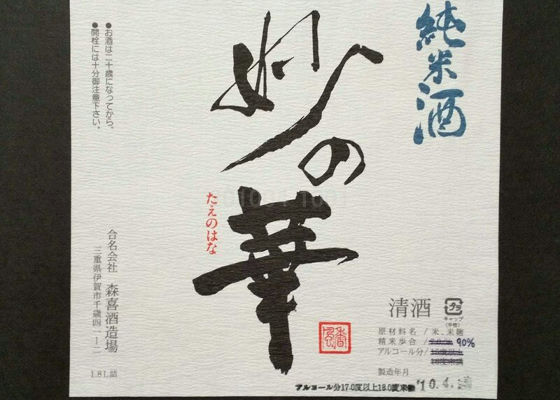 純米酒
妙の華
たえのはな
●お酒は二十歳になってから。
●開栓には十分御注意下さい。
合名会社 森喜酒造場
三重県伊賀市千歳四一ー二
1.8L詰
清酒
キャップ
原材料名/米、米麹
精米歩合 90%
アルコール分/
製造年月 '10.4.
アルコール分17.0度以上18.0度未満